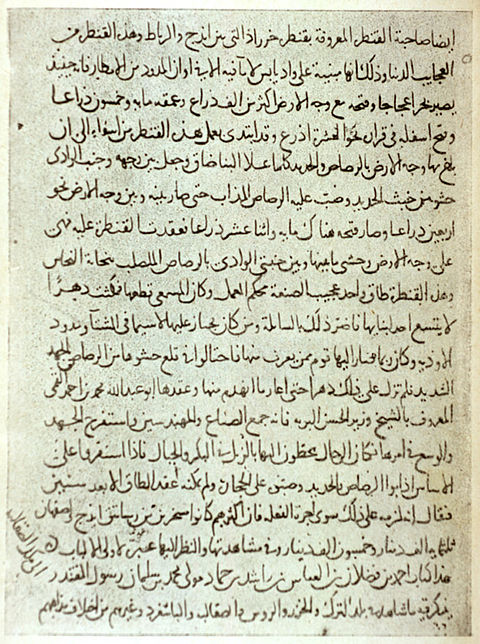 ايضا صاحبة القنطرة المعروفة بقنطرة خرزاد التي بين ايذج والرباط وهذه القنطرة من
العجايب الدنيا وذلك انها مبنية على واد يابس لا ماء فيه الا في اوان المدود من الامطار فانه حينئذ
يصير بحرا عجاجا وفتحه مع وجه الارض اكثر من الف ذراع وعمقه مايه وخمسون ذراعا
وفتح اسفله في قراره نحوا لعشرة اذرع وقد ابتدى بعمل هذه القنطرة من اسفلها الى ان
بلغ بها وجه الارض بالرصاص والحديد كلما علا البنا ضاق وجعل بين وجهه وجنب الوادي
حشو من خبث الحديد وصب عليه الرصاص المذاب حتى صار بينه وبين وجه الارض نحو
اربعين ذراعا وصار فتحه هناك مايه واثنا عشر ذراعا فعقدت القنطرة عليه فهي
على وجه الارض وحشى ما بينها وبين جنبتي الوادي بالرصاص المصلب بنحاتة النحاس
وهذه القنطرة طاق واحد عجيب الصنعة محكم العمل وكان المسمعي قطعها فمكثت دهرا
لا يتسع احد لبنايها فاضر ذلك بالسابلة ومن كان يجتاز عليها لا سيما في الشتاء ومدود
الاودية وكان ربما صار اليها قوم ممن يعرف منها فاحتالوا في قلع حشوها من الرصاص بالجهد
الشديد فلم تزل على ذلك دهرا حتى اعاد ما انهدم منها وعقدها ابو عبد الله محمد بن احمد القمي
المعروف بالشيخ وزير الحسن البويه فانه جمع الصناع والمهندسين واستفرغ الجهد
والوسع في امرها فكان الرجال يحطون اليها بالزبل في البكر والحبال فاذا استقروا على
الاساس اذابوا الرصاص بالحديد وصبوه على الحجارة ولم يمكنه عقد الطاق الا بعد سنين
فيقال انه لزمه على ذلك سوى اجرة الفعلة فان اكثرهم كانوا مسخرين من رساتيق ايذج واصفهان
ثلثمايه الف دينار وخمسون الف دينار وفي مشاهدتها والنظر اليها عبرة لاولي الالباب
هذا كتاب احمد بن فضلان بن العباس بن راشد بن حماد مولى محمد بن سليمان رسول المقتدر
يذكر فيه ما شاهد في بلد الترك والخزر والروس والصقالبة والباشغرد وغيرهم من اختلاف مذاهبهم